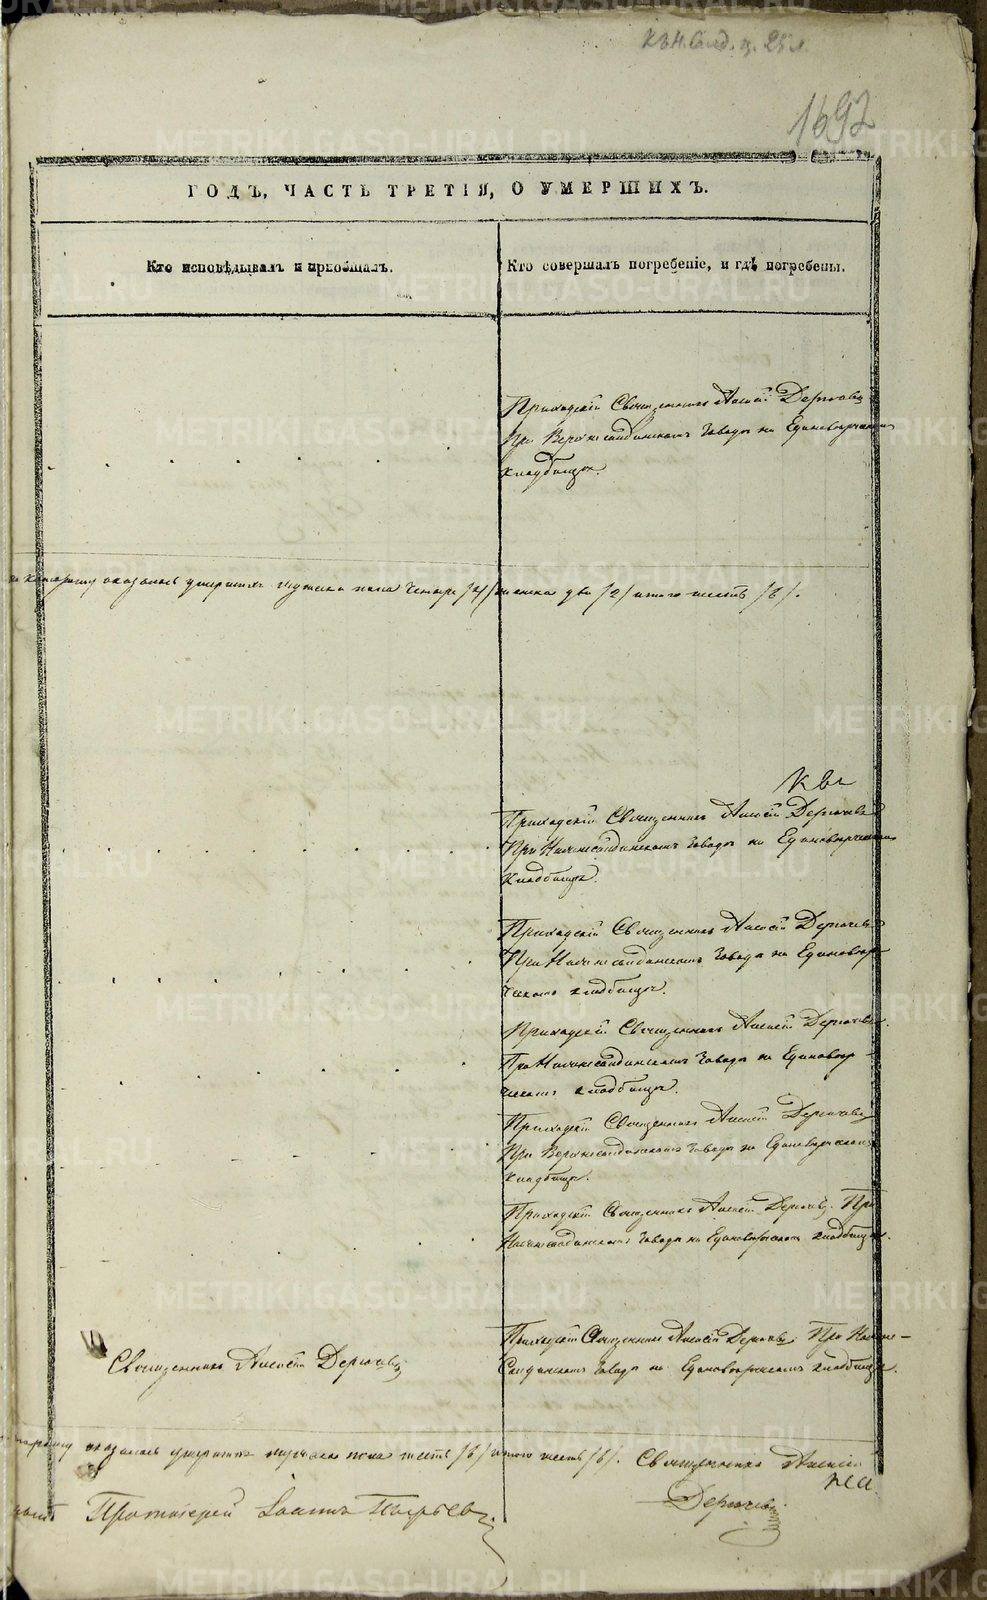 1692
ГОДЪ, ЧАСТЬ ТРЕТІЯ, О УМЕРШИХЪ.
Кто исповѣдывалъ и пріобщалъ.
Кто совершалъ погребеніе, и гдѣ погребены.
Приходскій Священникъ Алексій Дерючевъ
При Верхнесалдинскомъ Заводѣ на Единовѣрческомъ
кладбищѣ.
оказалось умершихъ мужеска пола четыре /4/ женска два /2/ итого шесть /6/.
Приходскій Священникъ Алексій Дерючевъ
При Нижнесалдинскомъ Заводѣ на Единовѣрческомъ
кладбищѣ.
Приходскій Священникъ Алексій Дерючевъ
При Нижнесалдинскомъ Заводѣ на Единовѣр-
ческомъ кладбищѣ.
Приходскій Священникъ Алексій Дерючевъ
При Нижнесалдинскомъ Заводѣ на Единовѣр-
ческомъ кладбищѣ.
Приходскій Священникъ Алексій Дерючевъ
При Верхнесалдинскомъ Заводѣ на Единовѣрческомъ
кладбищѣ.
Приходскій Священникъ Алексій Дерючевъ. При
Нижнесалдинскомъ Заводѣ на Единовѣрческомъ кладбищѣ.
Священникъ Алексій Дерючевъ
Приходскій Священникъ Алексій Дерючевъ. При Нижне-
Салдинскомъ Заводѣ на Единовѣрческомъ кладбищѣ.
оказалось умершихъ мужеска пола шесть /6/ итого шесть /6/. Священникъ Алексій
Дерючевъ
Протоіерей Іоаннъ Пырьевъ
METRIKI.GASO-URAL.RU